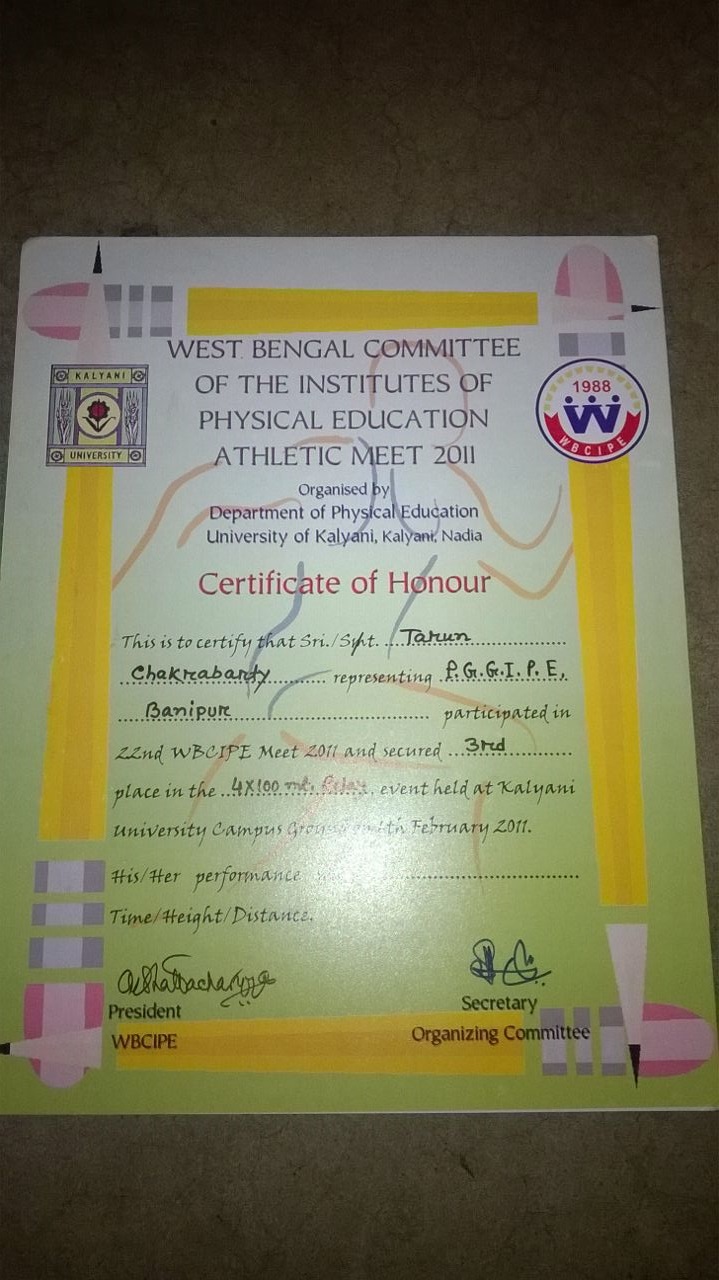 WEST BENGAL COMMITTEE
OF THE INSTITUTES OF
PHYSICAL EDUCATION
ATHLETIC MEET 2011
KALYANI
UNIVERSITY
1988
W
WBCIPE
Organised by
Department of Physical Education
University of Kalyani, Kalyani, Nadia
Certificate of Honour
This is to certify that Sri./Smt. Tarun
Chakrabardy representing P.G.G.I.P.E,
Banipur participated in
22nd WBCIPE Meet 2011 and secured 3rd
place in the 4X100 mt. Relay event held at Kalyani
University Campus February 2011.
His/Her performance
Time/Height/Distance.
President
WBCIPE
Secretary
Organizing Committee